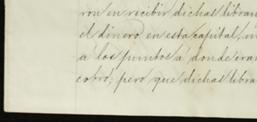 ron en recibir dichas libran
el dinero en esta capital, 
á los puntos á donde eran
cobró; pero que dichas libra